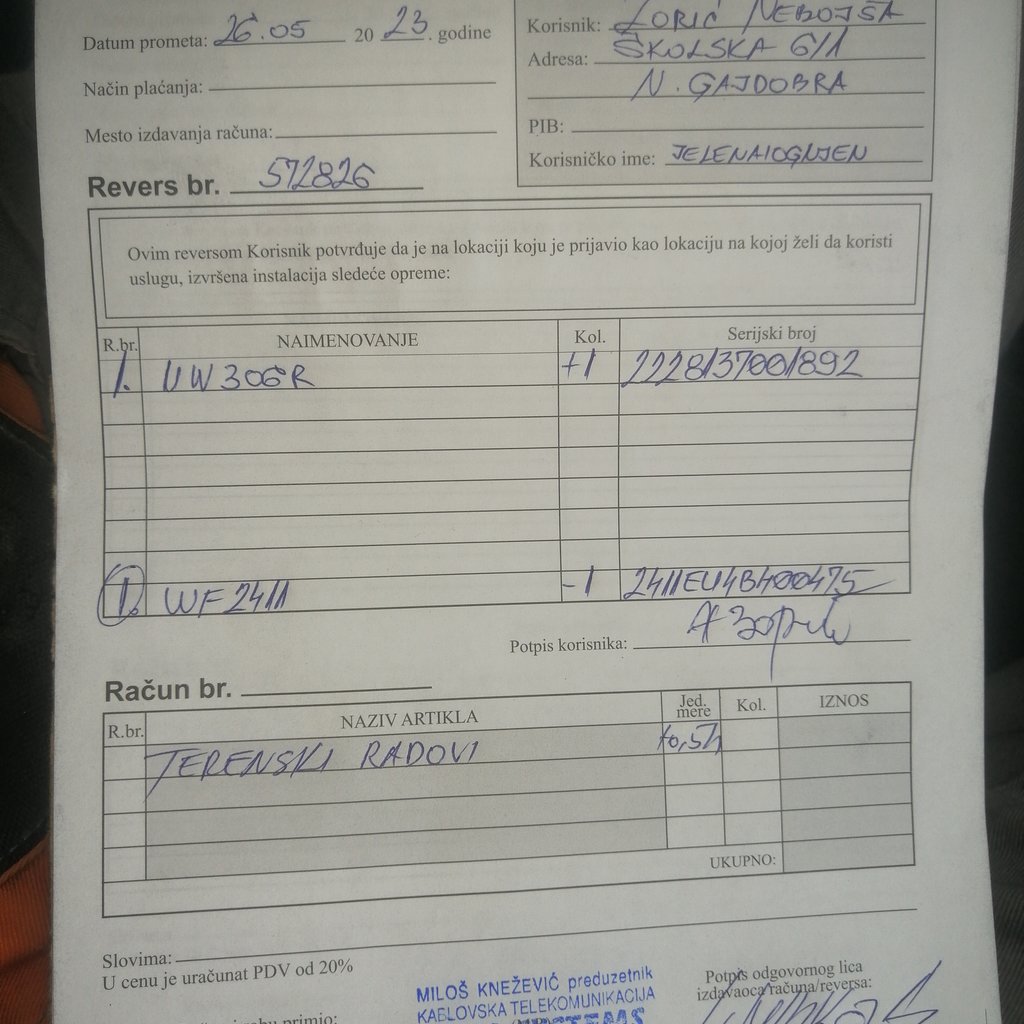 Datum prometa: 26.05 2023. godine
Način plaćanja:
Mesto izdavanja računa:
Revers br. 572826
Korisnik: ZORIĆ NEBOJŠA
Adresa: ŠKOLSKA 6/1
N. GAJDOBRA
PIB:
Korisničko ime: JELENAIOGNJEN
Ovim reversom Korisnik potvrđuje da je na lokaciji koju je prijavio kao lokaciju na kojoj želi da koristi
uslugu, izvršena instalacija sledeće opreme:
R.br. NAIMENOVANJE Kol. Serijski broj
1. UW306R +1 2228137001892
1. WF2411 -1 2411EU4B400475
Potpis korisnika:
Račun br.
R.br. NAZIV ARTIKLA Jed. mere Kol. IZNOS
TERENSKI RADOVI +0,5h
UKUPNO:
Slovima:
U cenu je uračunat PDV od 20%
MILOŠ KNEŽEVIĆ preduzetnik
KABLOVSKA TELEKOMUNIKACIJA
Potpis odgovornog lica
izdavaoca računa/reversa:
primio: